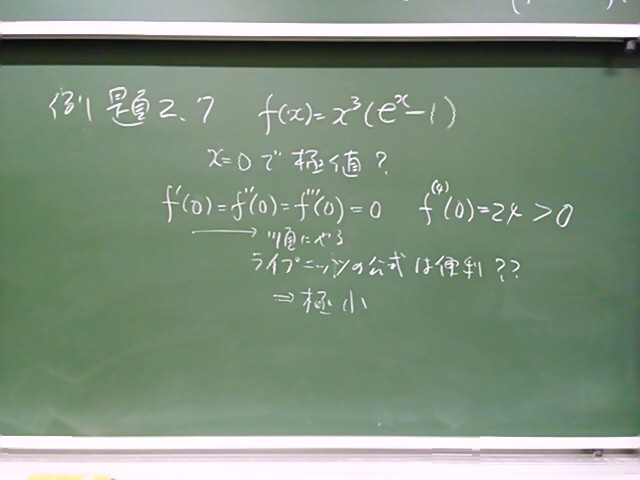 例題2.7 f(x)=x³(eˣ-1)
x=0で極値?
f'(0)=f''(0)=f'''(0)=0 f⁽⁴⁾(0)=24>0
→順にやる
ライプニッツの公式は便利??
⇒極小